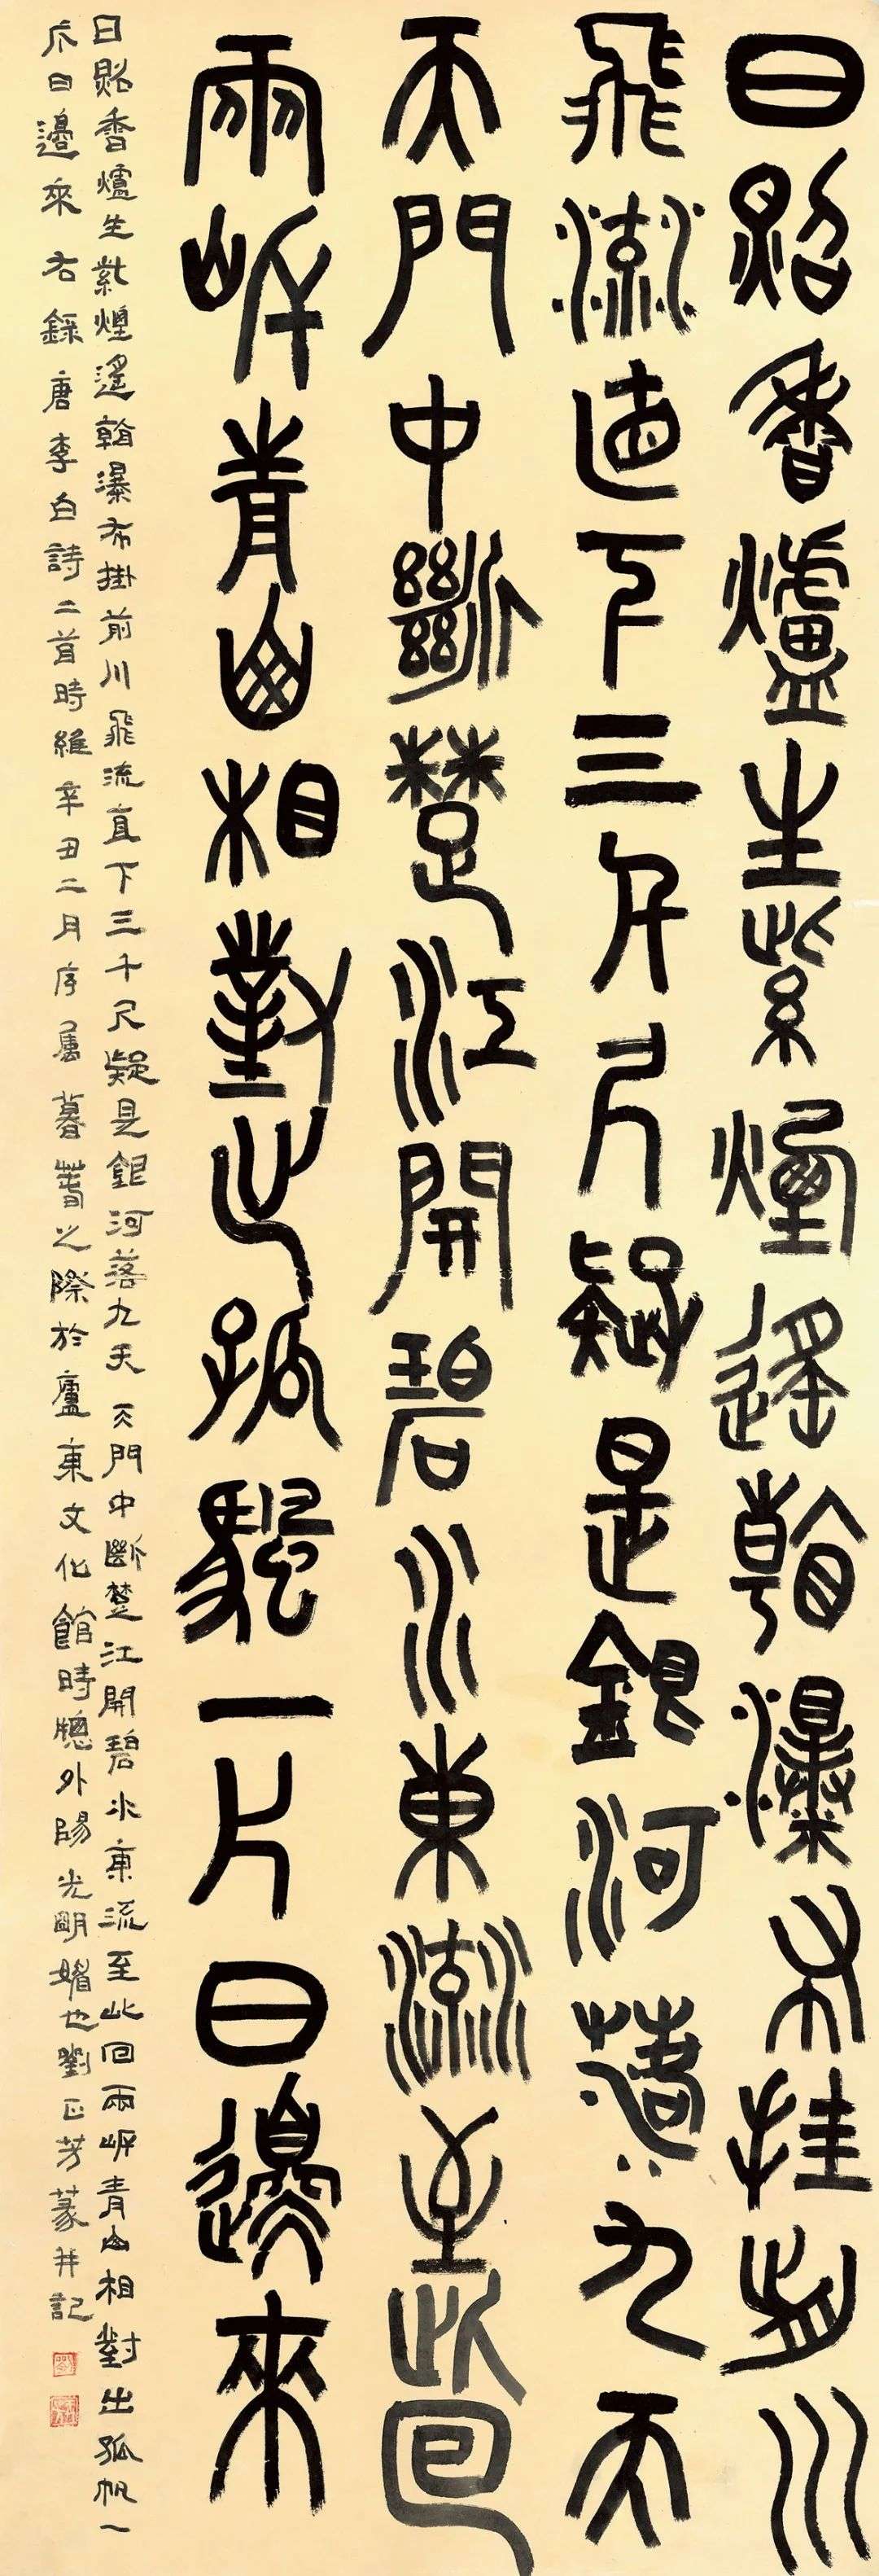 日照香爐生紫煙遙看瀑布挂前川
飛流直下三千尺疑是銀河落九天
天門中斷楚江開碧水東流至此回
兩岸青山相對出孤帆一片日邊來
日照香爐生紫煙遙看瀑布掛前川飛流直下三千尺疑是銀河落九天天門中斷楚江開碧水東流至此回兩岸青山相對出孤帆一
片日邊來右錄唐李白詩二首時維辛丑二月序屬暮春之際於廬東文化館時窗外陽光明媚也劉正芳篆并記